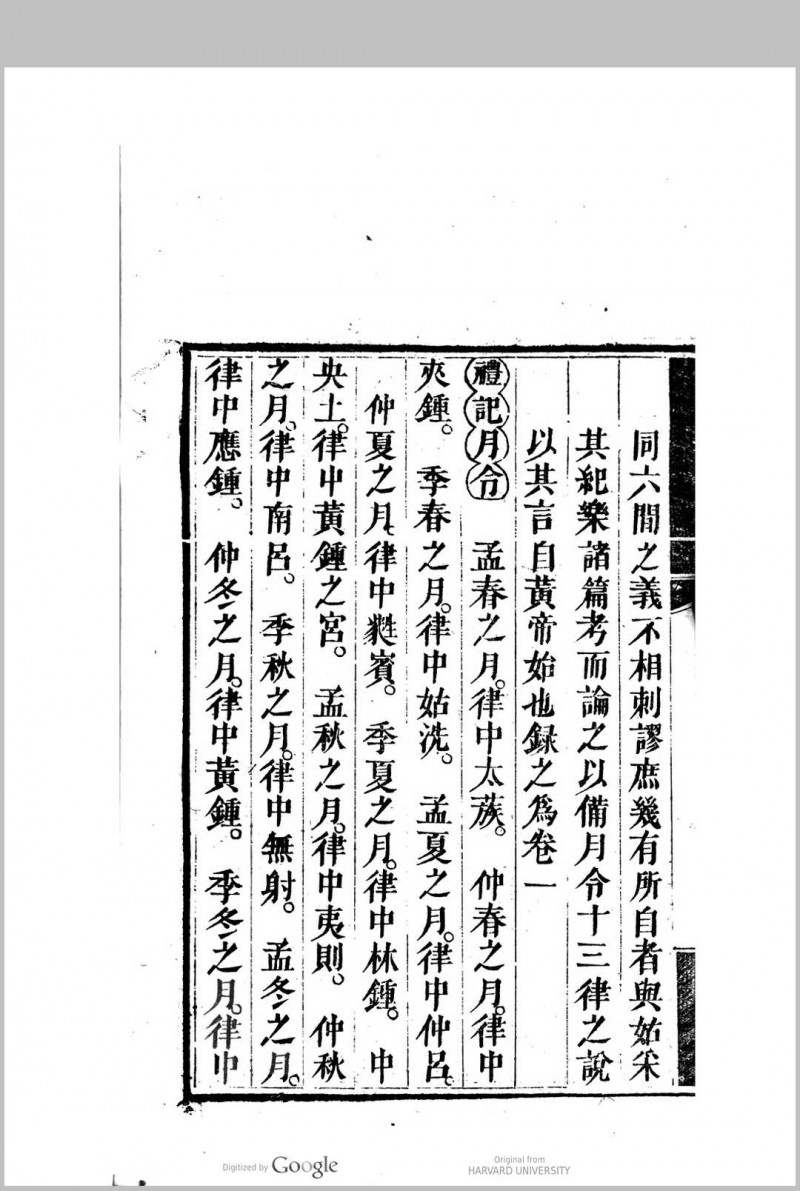 同六間之義不相刺謬庶幾有所自者與姑采
其紀樂諸篇考而論之以備月令十三律之說
以其言自黃帝始也録之爲卷一
禮記月令　孟春之月。律中太蔟。　仲春之月。律中
夾鍾。　季春之月。律中姑洗。　孟夏之月。律中仲呂。
仲夏之月。律中蕤賓。　季夏之月。律中林鍾。　中
央土。律中黃鍾之宮。　孟秋之月。律中夷則。　仲秋
之月。律中南呂。　季秋之月。律中無射。　孟冬之月。
律中應鍾。　仲冬之月。律中黃鍾。　季冬之月。律中
Digitized by Google
Original from
HARVARD UNIVERSITY